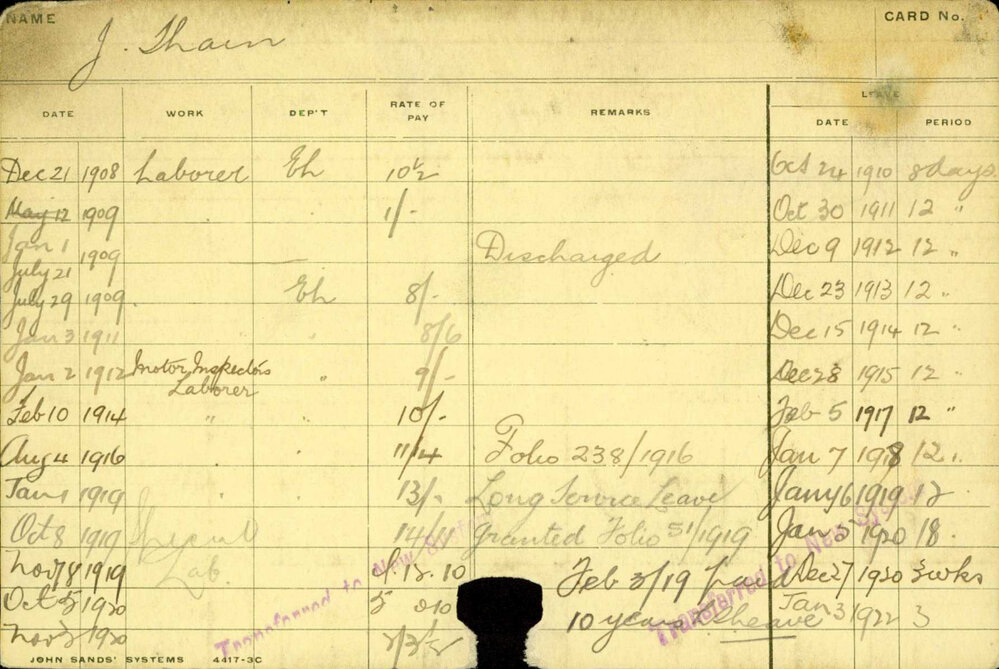 NAME J. Thain CARD No.
LEAVE
DATE WORK DEP'T RATE OF PAY REMARKS DATE PERIOD
Dec 21 1908 Laborer Eh 10½ Oct 24 1910 8 days
May 12 1909 " " 1/- Oct 30 1911 12 "
Jan 1 1909 Discharged Dec 9 1912 12 "
July 21
July 29 1909 " Eh 8/- Dec 23 1913 12 "
Jan 3 1911 " " 8/6 Dec 15 1914 12 "
Jan 2 1912 Motor Inspectors Laborer " 9/- Dec 28 1915 12 "
Feb 10 1914 " " 10/- Feb 5 1917 12 "
Aug 4 1916 11/4 Folio 238/1916 Jan 7 1918 12 "
Jan 1 1919 " " 13/- Long Service Leave Jany 6 1919 12
Oct 8 1919 14/4 Granted Folio 51/1919 Jan 5 1920 18
Nov 1919 Lab. Feb 3/19 paid Dec 27 1920 3 wks
Oct 1920 10 years Jan 3 1922 3
Nov 1920
Transferred to New System
Transferred to New System
JOHN SANDS' SYSTEMS 4417-3C